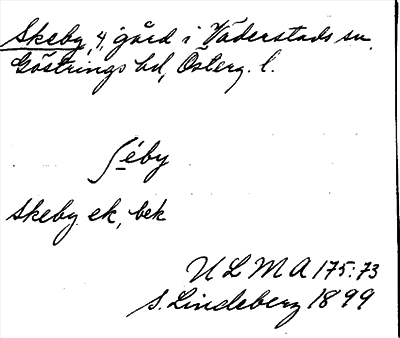 Skeby, 4, gård i Väderstads sn,
Göstrings hd, Österg. l.
ʃéby
Skeby ek, bek
ULMA 175:73
S. Lindeberg 1899